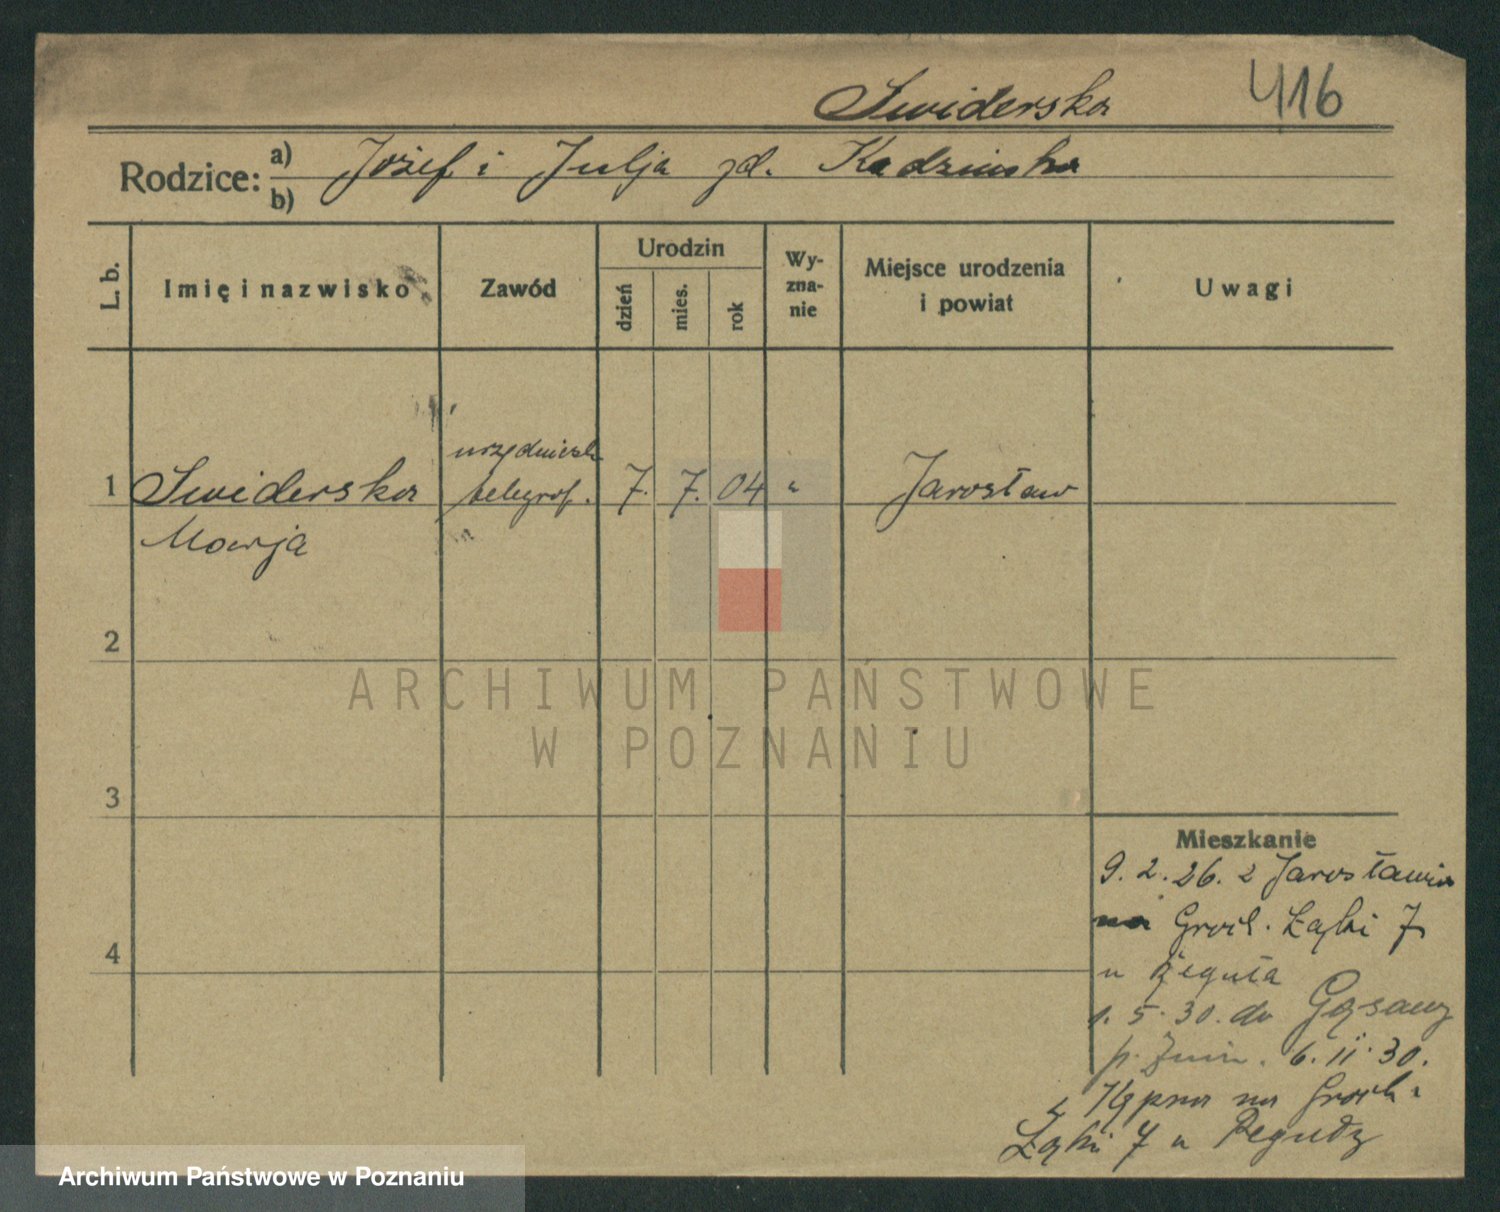 Swiderska 416
Rodzice: a) Józef i Julja zd. Kadzińska
b)
L. b. Imię i nazwisko Zawód Urodzin dzień mies. rok Wy-zna-nie Miejsce urodzenia i powiat Uwagi
1 Swiderska urzędniczk telegraf. 7. 7. 04 Jarosław
Marja
2
ARCHIWUM PAŃSTWOWE
W POZNANIU
3
Mieszkanie
9. 2. 26. z Jarosławia
na Groch. Łąki 7
u Reguła
1. 5. 30. do Gąsawy
p. Żnin. 6. 11. 30.
z na Groch.
Łąki 7 u
4
Archiwum Państwowe w Poznaniu